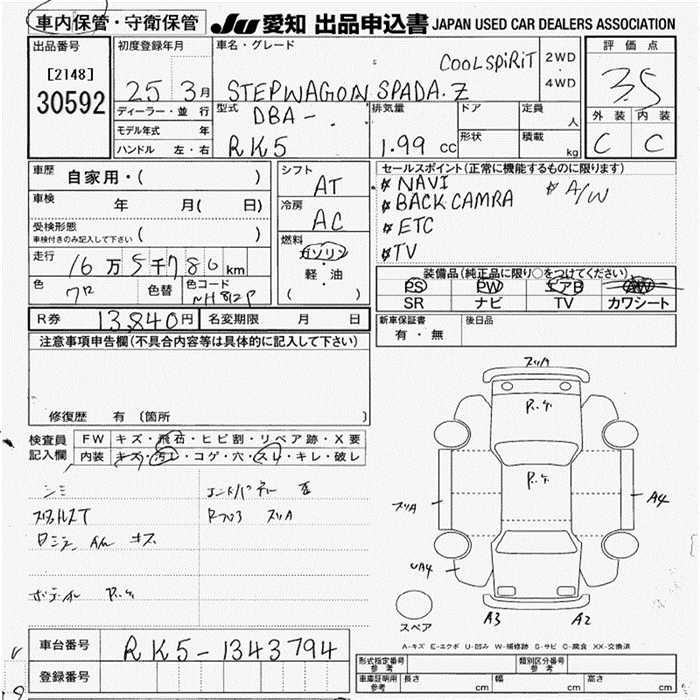 車内保管・守衛保管 JU 愛知 出品申込書 JAPAN USED CAR DEALERS ASSOCIATION
出品番号 初度登録年月 車名・グレード COOL SPIRIT 2WD 評価点
[2148] 25 3月 STEPWAGON SPADA.Z 4WD 3.5
30592 ディーラー・並行 型式 DBA- 排気量 ドア 定員 人 外装 内装
モデル年式 年 RK5 1.99 cc 形状 積載 kg C C
ハンドル 左・右
車歴 自家用・( ) シフト AT セールスポイント(正常に機能するものに限ります)
車検 年 月( 日) 冷房 AC NAVI A/W
受検形態 BACK CAMRA
車検付きのみ記入して下さい ( ) 燃料 ETC
走行 16万5千780km ガソリン TV
色 色替 色コード NH812P 軽・油 装備品(純正品に限り○をつけてください)
( ) PS PW エアB AW
SR ナビ TV カワシート
R券 13,840円 名変期限 月 日 新車保証書 後日品
有・無
注意事項申告欄(不具合内容等は具体的に記入して下さい)
修復歴 有 (箇所
検査員 FW キズ・飛石・ヒビ割・リペア跡・X要
記入欄 内装 キズ・汚レ・コゲ・穴・スレ・キレ・破レ
シミ
スリA
A4
UA4
A3 A2
スペア
A-キズ E-エクボ U-凹み W-補修跡 S-サビ C-腐食 XX-交換済
車台番号 RK5-1343794
登録番号
形式指定番号 参考 類別区分番号 参考
車庫証明用 参考 長さ cm 幅 cm 高さ cm